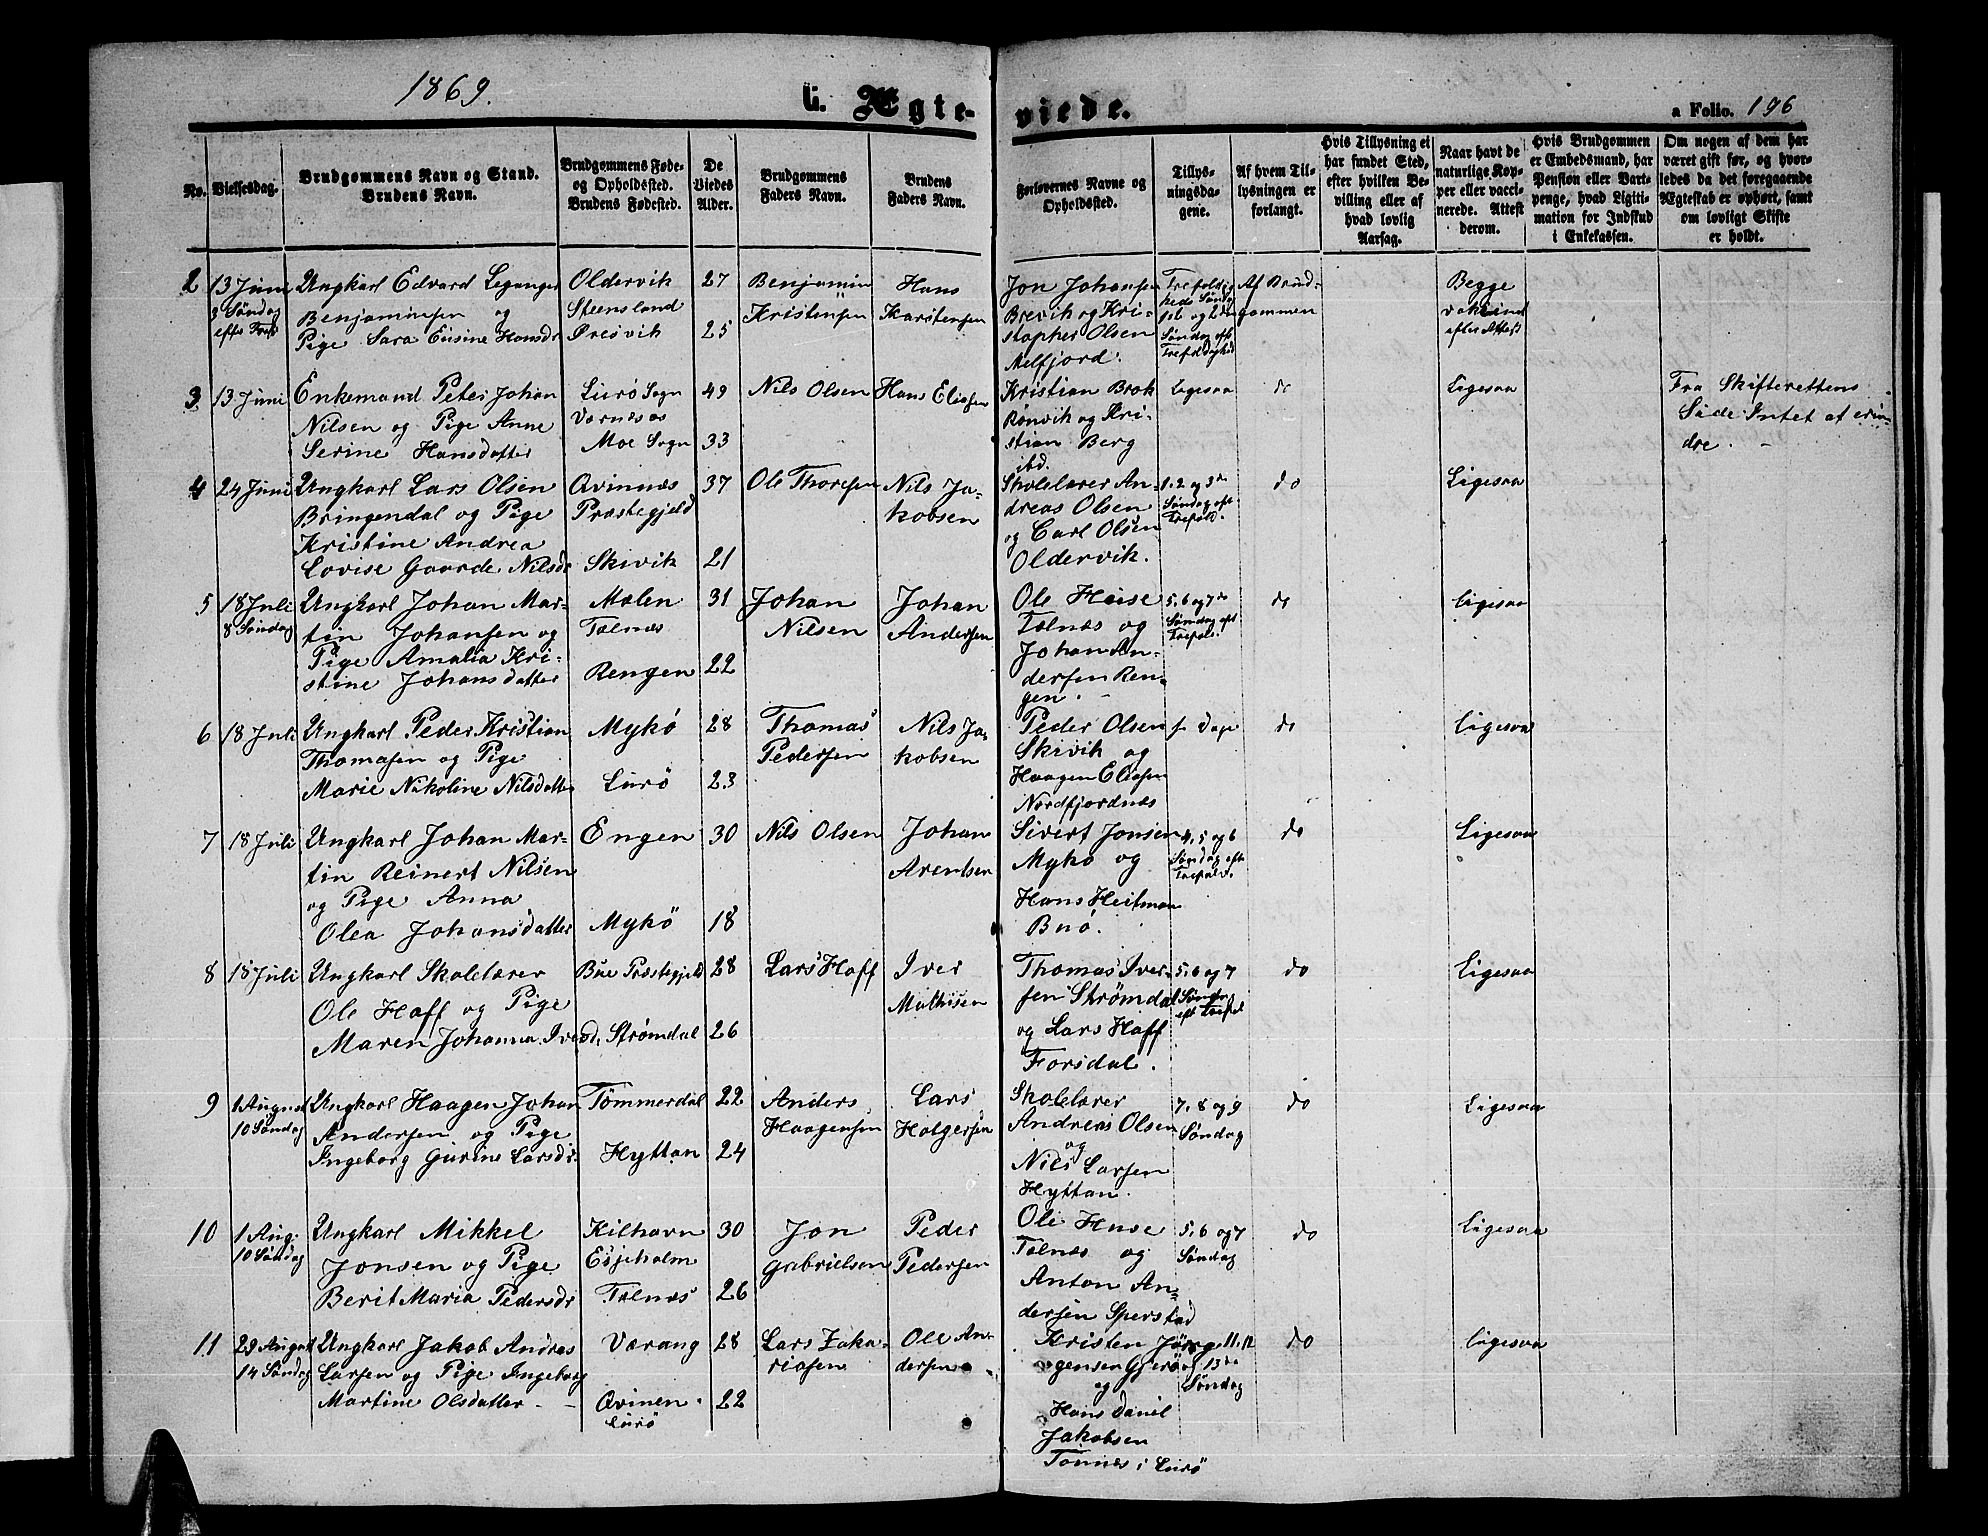 1869.
G. Ægte-
viede.
a Folio. 196
No.
Vielsesdag.
Brudgommens Navn og Stand.
Brudens Navn.
Brudgommens Føde-
og Opholdssted.
Brudens Fødested.
De
Viedes
Alder.
Brudgommens
Faders Navn.
Brudens
Faders Navn.
Forlovernes Navne og
Opholdssted.
Tillys-
ningsda-
gene.
Af hvem Til-
lysningen er
forlangt.
Hvis Tillysning ei
har fundet Sted,
efter hvilken Be-
villing eller af
hvad lovlig
Aarsag.
Naar havt de
naturlige Kop-
per eller vacci-
nerede. Attest
derom.
Hvis Brudgommen
er Embedsmand, har
Pension eller Vart-
penge, hvad Ligiti-
mation for Indskud
i Enkekassen.
Om nogen af dem har
været gift før, og hvor-
ledes da det foregaaende
Ægteskab er ophørt, samt
om lovligt Skifte
er holdt.
2
13 Juni
3 Søndag
efter Tref
Ungkarl Edvard Leganger
Benjaminsen og
Pige Sara Eusine Hansdr
Oldervik
Steensland
Øresvik
27
25
Benjamin
Kristensen
Hans
Karstensen
Jon Johansen
Brevik og Kri-
stopher Olsen
Melfjord.
Trefoldig
heds Søndag
1st og 2den
Søndag eft
Trefoldighed
Af Brud-
gommen
Begge
vakcined
efter Attest
3
13 Juni
Enkemand Peter Johan
Nilsen og Pige Anne
Serine Hansdatter
Lurø Sogn
Værnesæs
Moe Sogn
49
33
Nils Olsen
Hans Eliasen
Kristian Brok
Rönvik og Kri-
stian Berg
ibd.
Ligesaa
do
Ligesaa
Fra Skifterettens
Side Intet at erin-
dre. -
4
24 Juni
Ungkarl Lars Olsen
Bringendal og Pige
Kristine Andrea
Lovise Gaarde Nilsdr
Qvinnæs
Præstegjeld
Skivik
37
21
Ole Thoresen
Nils Ja-
kobsen
Skolelærer An-
dreas Olsen
og Carl Olsen
Oldervik.
1. 2 og 3de
Søndag eft
Trefold.
do
Ligesaa
5
18 Juli
8 Søndag
Ungkarl Johan Mar-
tin Johansen og
Pige Amalia Kri-
stine Johansdatter
Molen
Tælnæs
Rengen
31
22
Johan
Nilsen
Johan
Andersen
Ole Huse
Tælnæs og
Johan An-
dersen Ren-
gen.
5, 6 og 7de
Søndag eft
Trefol.
do
Ligesaa
6
18 Juli
Ungkarl Peder Kristian
Thomasen og Pige
Marie Nikoline Nilsdatter
Mykö
Lurö
28
23
Thomas
Pedersen
Nils Ja-
kobsen
Peder Olsen
Skivik og
Haagen Eliasen
Nordfjordnæs
s. Dage
do
Ligesaa
7
18 Juli
Ungkarl Johan Mar-
tin Reinert Nilsen
og Pige Anna
Olea Johansdatter
Engen
Mykö
30
18
Nils Olsen
Johan
Arentsen
Sivert Jonsen
Mykö og
Hans Heitman
Buö.
4, 5 og 6
Søndag eft
Trefold.
do
Ligesaa
8
18 Juli
Ungkarl Skolelærer
Ole Haff og Pige
Maren Johanna Iversd.
Bue Præstegjeld
Strömdal
28
26
Lars Haff
Iver
Mathisen
Thomas Iver-
sen Strömdal
og Lars Haff
Forsdal.
5, 6 og 7
Søndag
eft Trefol
do
Ligesaa
9
1 August
10 Søndag
Ungkarl Haagen Johan
Andersen og Pige
Ingeborg Gurine Larsdr.
Tömmerdal
Hyttan
22
24
Anders
Haagensen
Lars
Holgersen
Skolelærer
Andreas Olsen
og
Nils Larsen
Hyttan.
7, 8 og 9
Søndag
do
Ligesaa
10
1 Aug:
10 Søndag
Ungkarl Mikkel
Jonsen og Pige
Berit Maria Pedersdr
Kilhavn
Esjeholm
Tælnæs
30
26
Jon
Gabrielsen
Peder
Pedersen
Ole Huse
Tælnæs og
Anton An-
dersen Sperstad
5, 6 og 7
Søndag
do
Ligesaa
11
29 August
14 Søndag
Ungkarl Jakob Andreas
Larsen og Pige Ingeborg
Martine Olsdatter -
Værang
Qvinen
Lurö
28
22
Lars Zaka-
riasen
Ole An-
dersen
Kristen Jörg-
gensen Gjerö
og
Hans Daniel
Jakobsen
Tonnes i Lurö
11. 12
og 13de
Søndag
do
Ligesaa